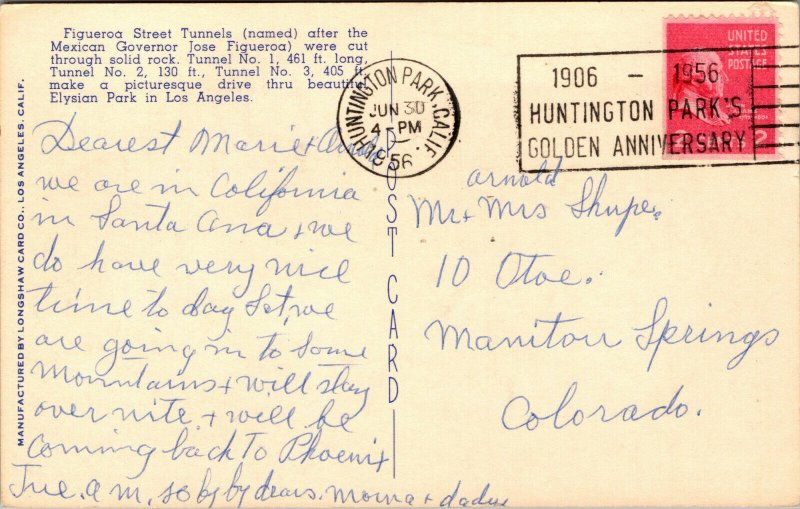 Figueroa Street Tunnels (named) after the
Mexican Governor Jose Figueroa) were cut
through solid rock. Tunnel No. 1, 461 ft. long,
Tunnel No. 2, 130 ft., Tunnel No. 3, 405 ft.
make a picturesque drive thru beautiful
Elysian Park in Los Angeles.
MANUFACTURED BY LONGSHAW CARD CO., LOS ANGELES, CALIF.
POST CARD
HUNTINGTON PARK, CALIF.
JUN 30
4 - PM
1956
1906 - 1956
HUNTINGTON PARK'S
GOLDEN ANNIVERSARY
UNITED
STATES
POSTAGE
2
Dearest Marie +
we are in California
in Santa Ana + we
do have very nice
time to day Sat, we
are going in to some
mountains + will stay
over nite + will be
coming back to Phoenix
Tue. a.m. so by by dears. moma + dadie
arnold
Mr + Mrs Shupe.
10 Otoe.
Manitou Springs
Colorado.